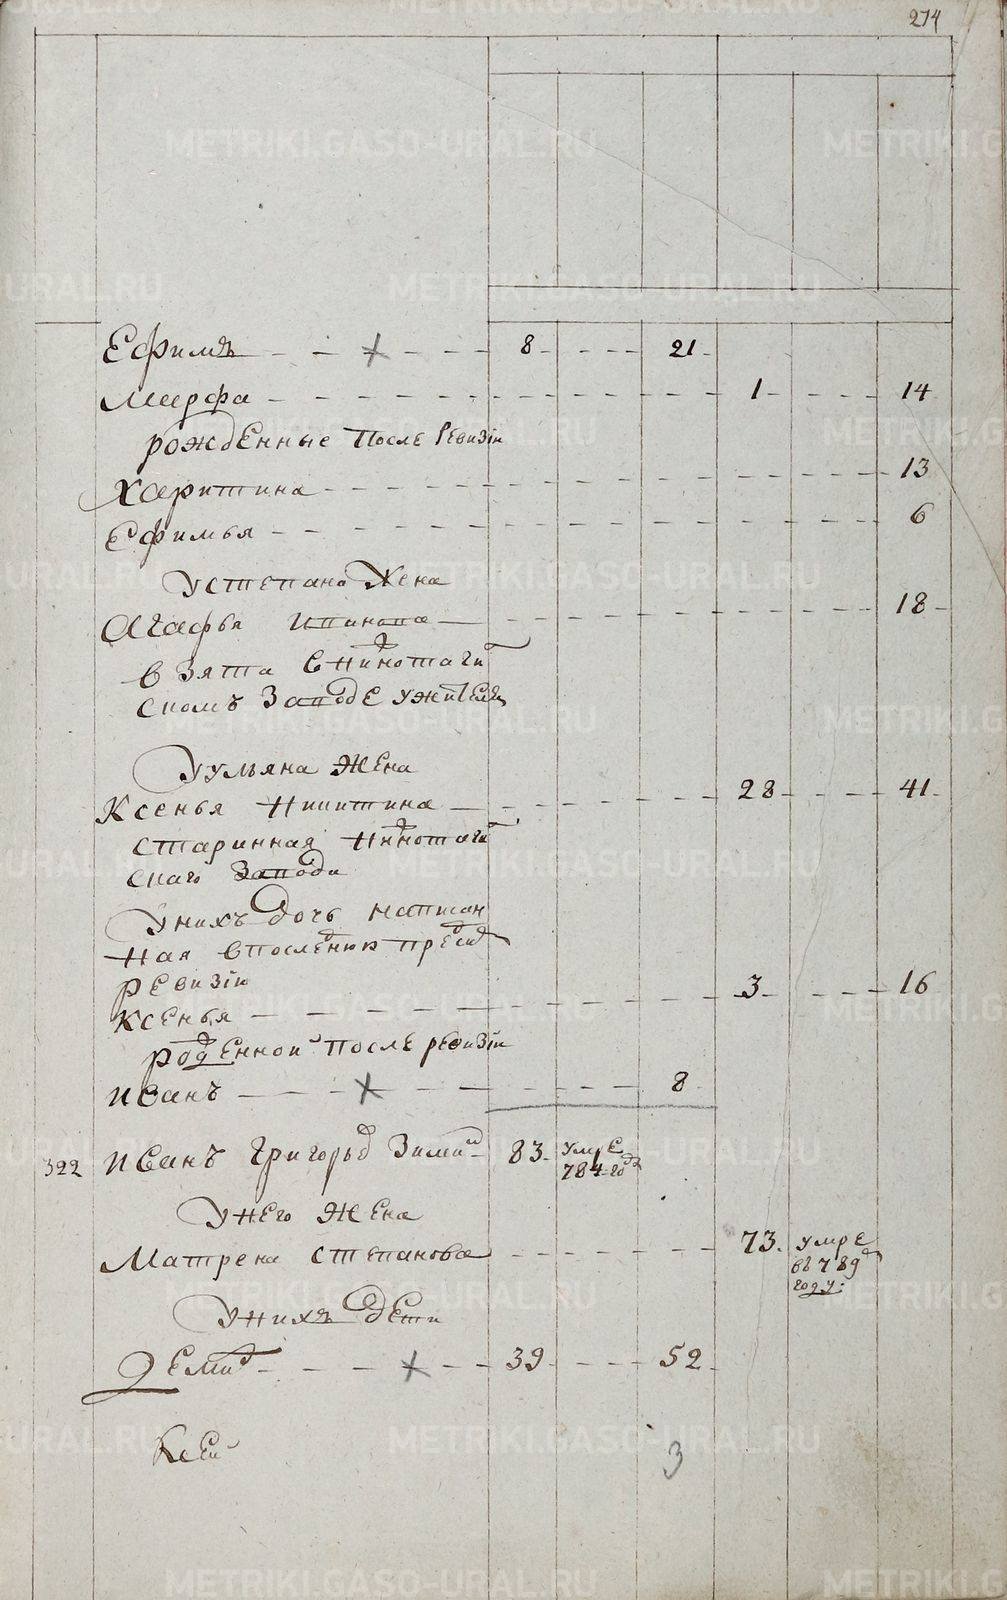 274
Ефимъ 8 21
Марфа 1 14
рожденные после ревизiи
Харитина 13
Ефимья 6
У степана Жена
Агафья 18
взята в нижнотаги
скомъ заводе ужителя
У ульяна жена
Ксенья Никитина 28 41
старинная Нижнотаги
скаго завода
У нихъ дочь написан
ная в последнюю пред сим
ревизiи
Ксенья 3 16
рожденной после ревизiи
Иванъ 8
322 Иванъ Григорьев Зимин 83 умре
784 году
У него жена
Матрена Степанова 73. умре
въ 789
году:
У нихъ дети
Демид 39 52
3